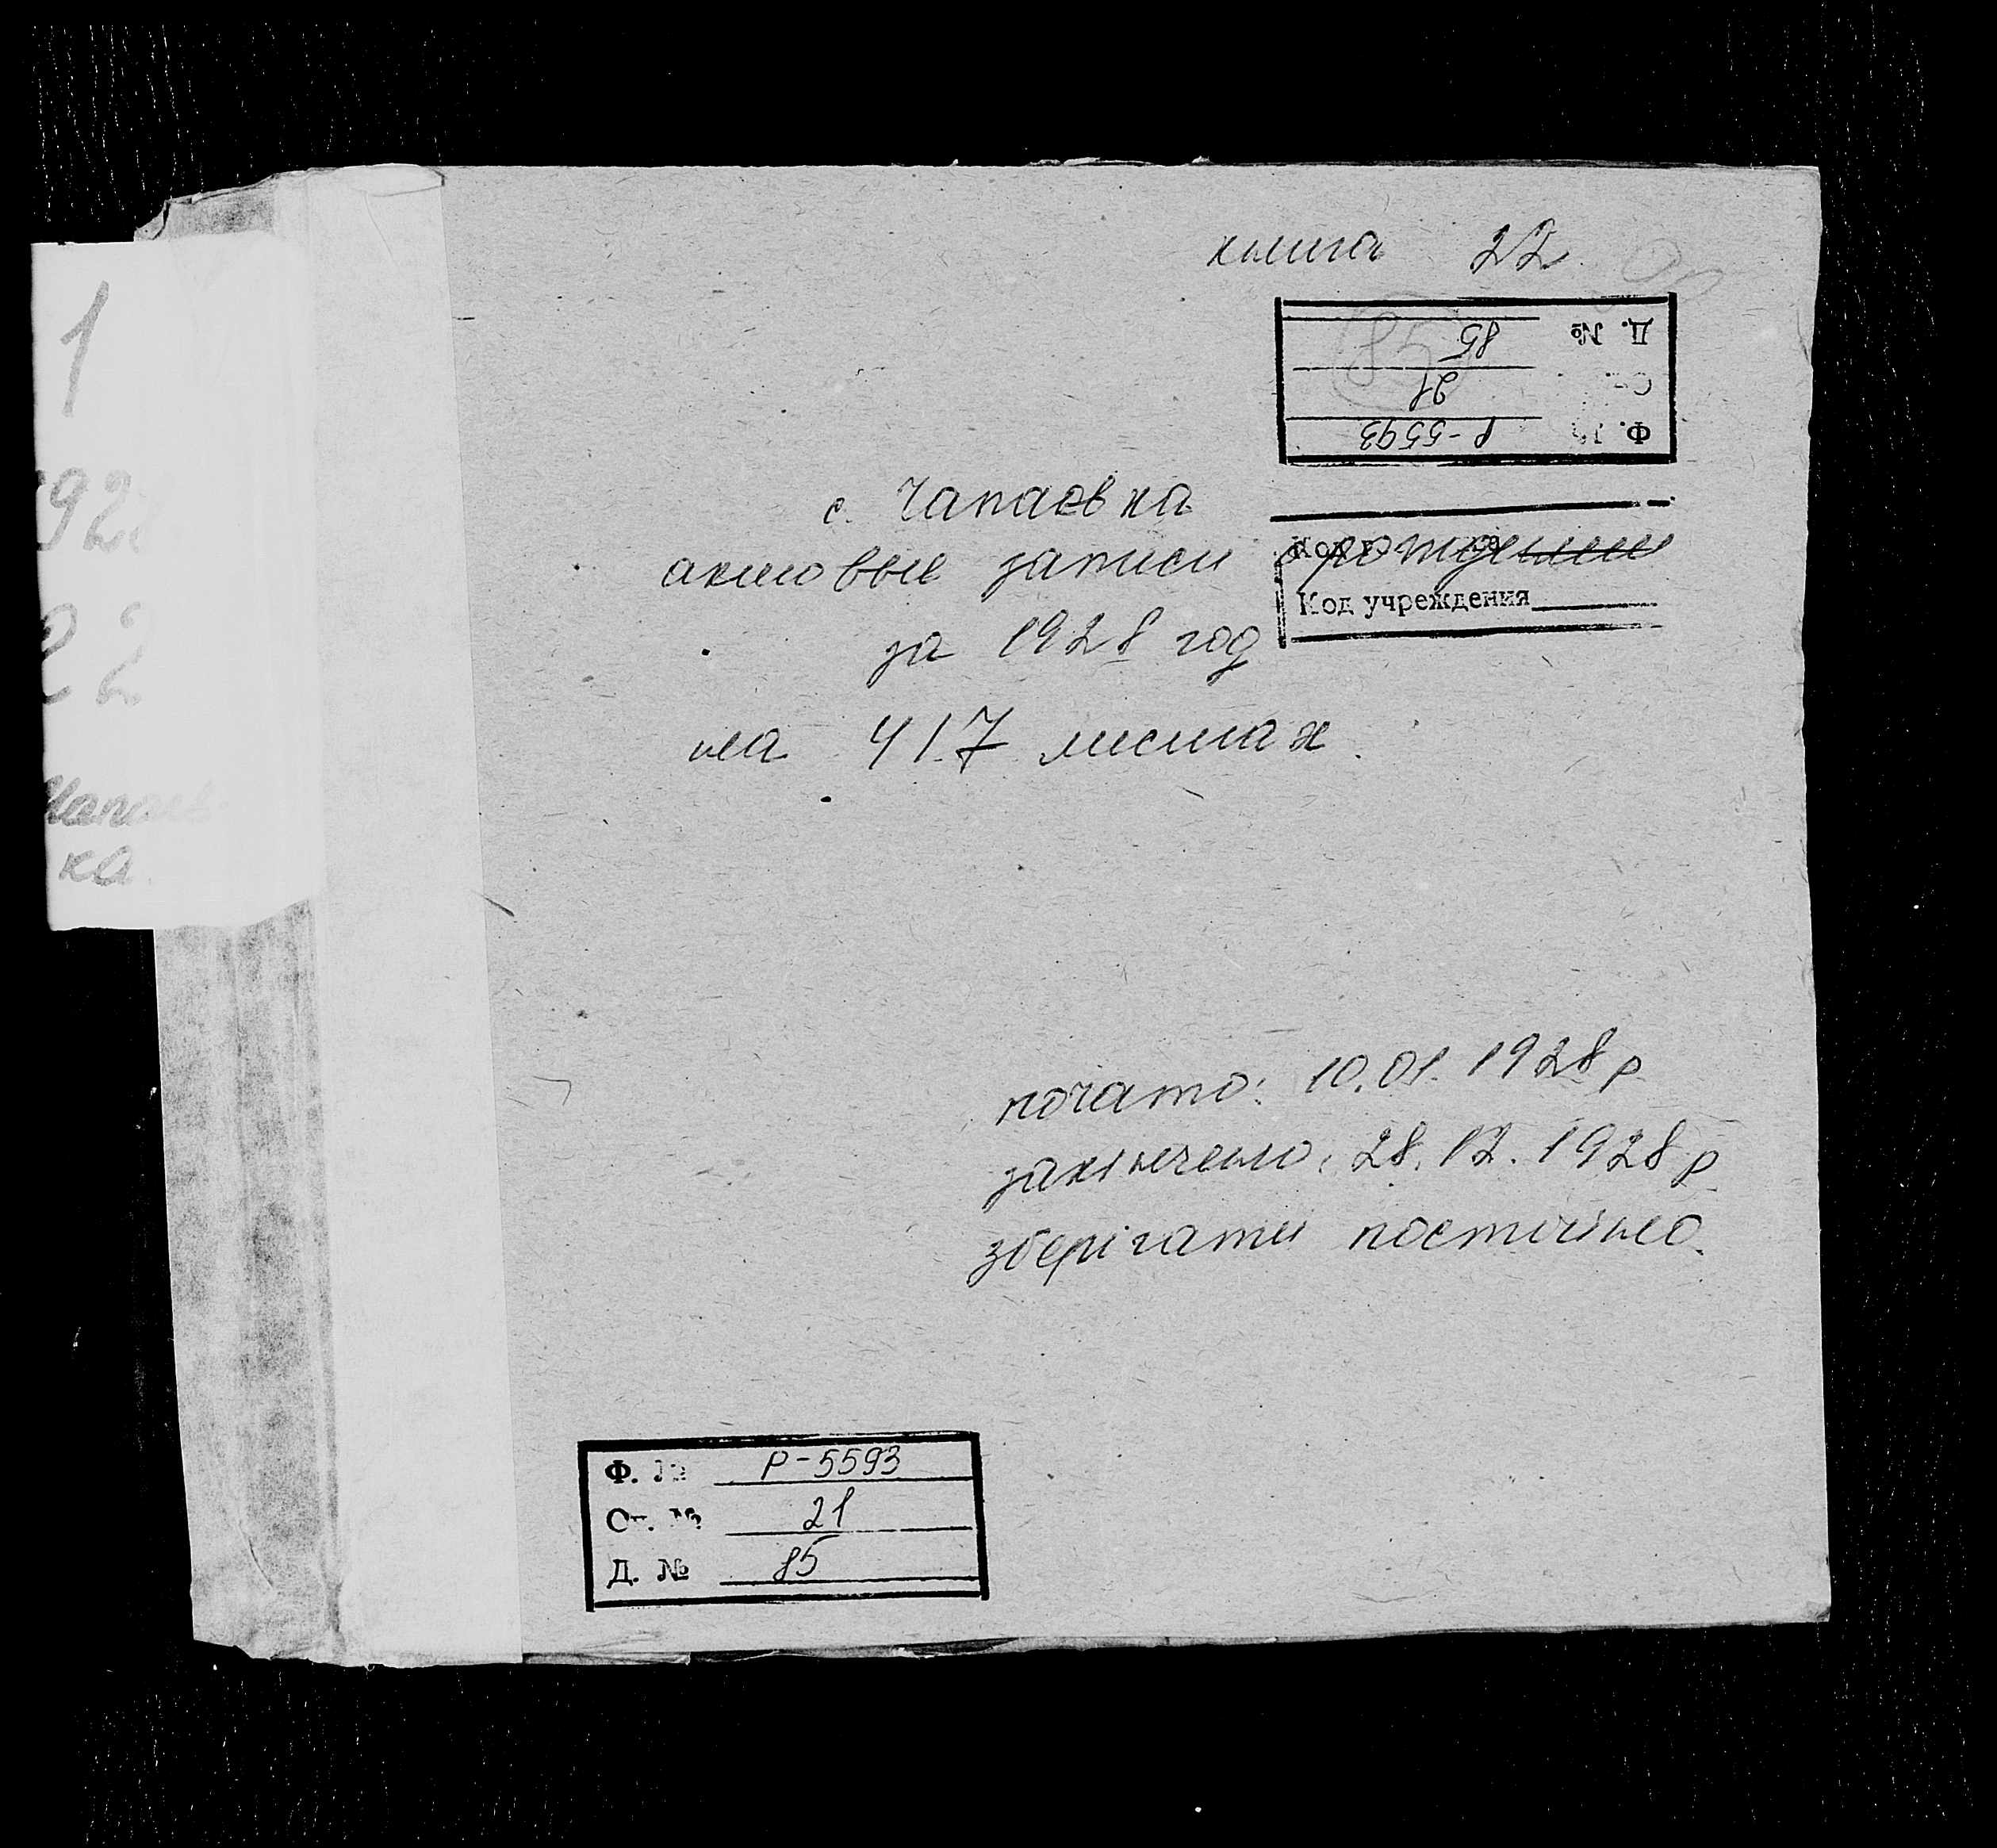 книга 22
Д. № 85
21
Ф. № Р-5593
85
с. Чапаєвка
актовые записи о рождении
Код учреждения
за 1928 год
на 417 листах.
почато: 10.01.1928 р
закінчено: 28.12.1928 р
зберігати постійно.
Ф. № Р-5593
Оп. № 21
Д. № 85
1
1928
22
Чапаев
ка.